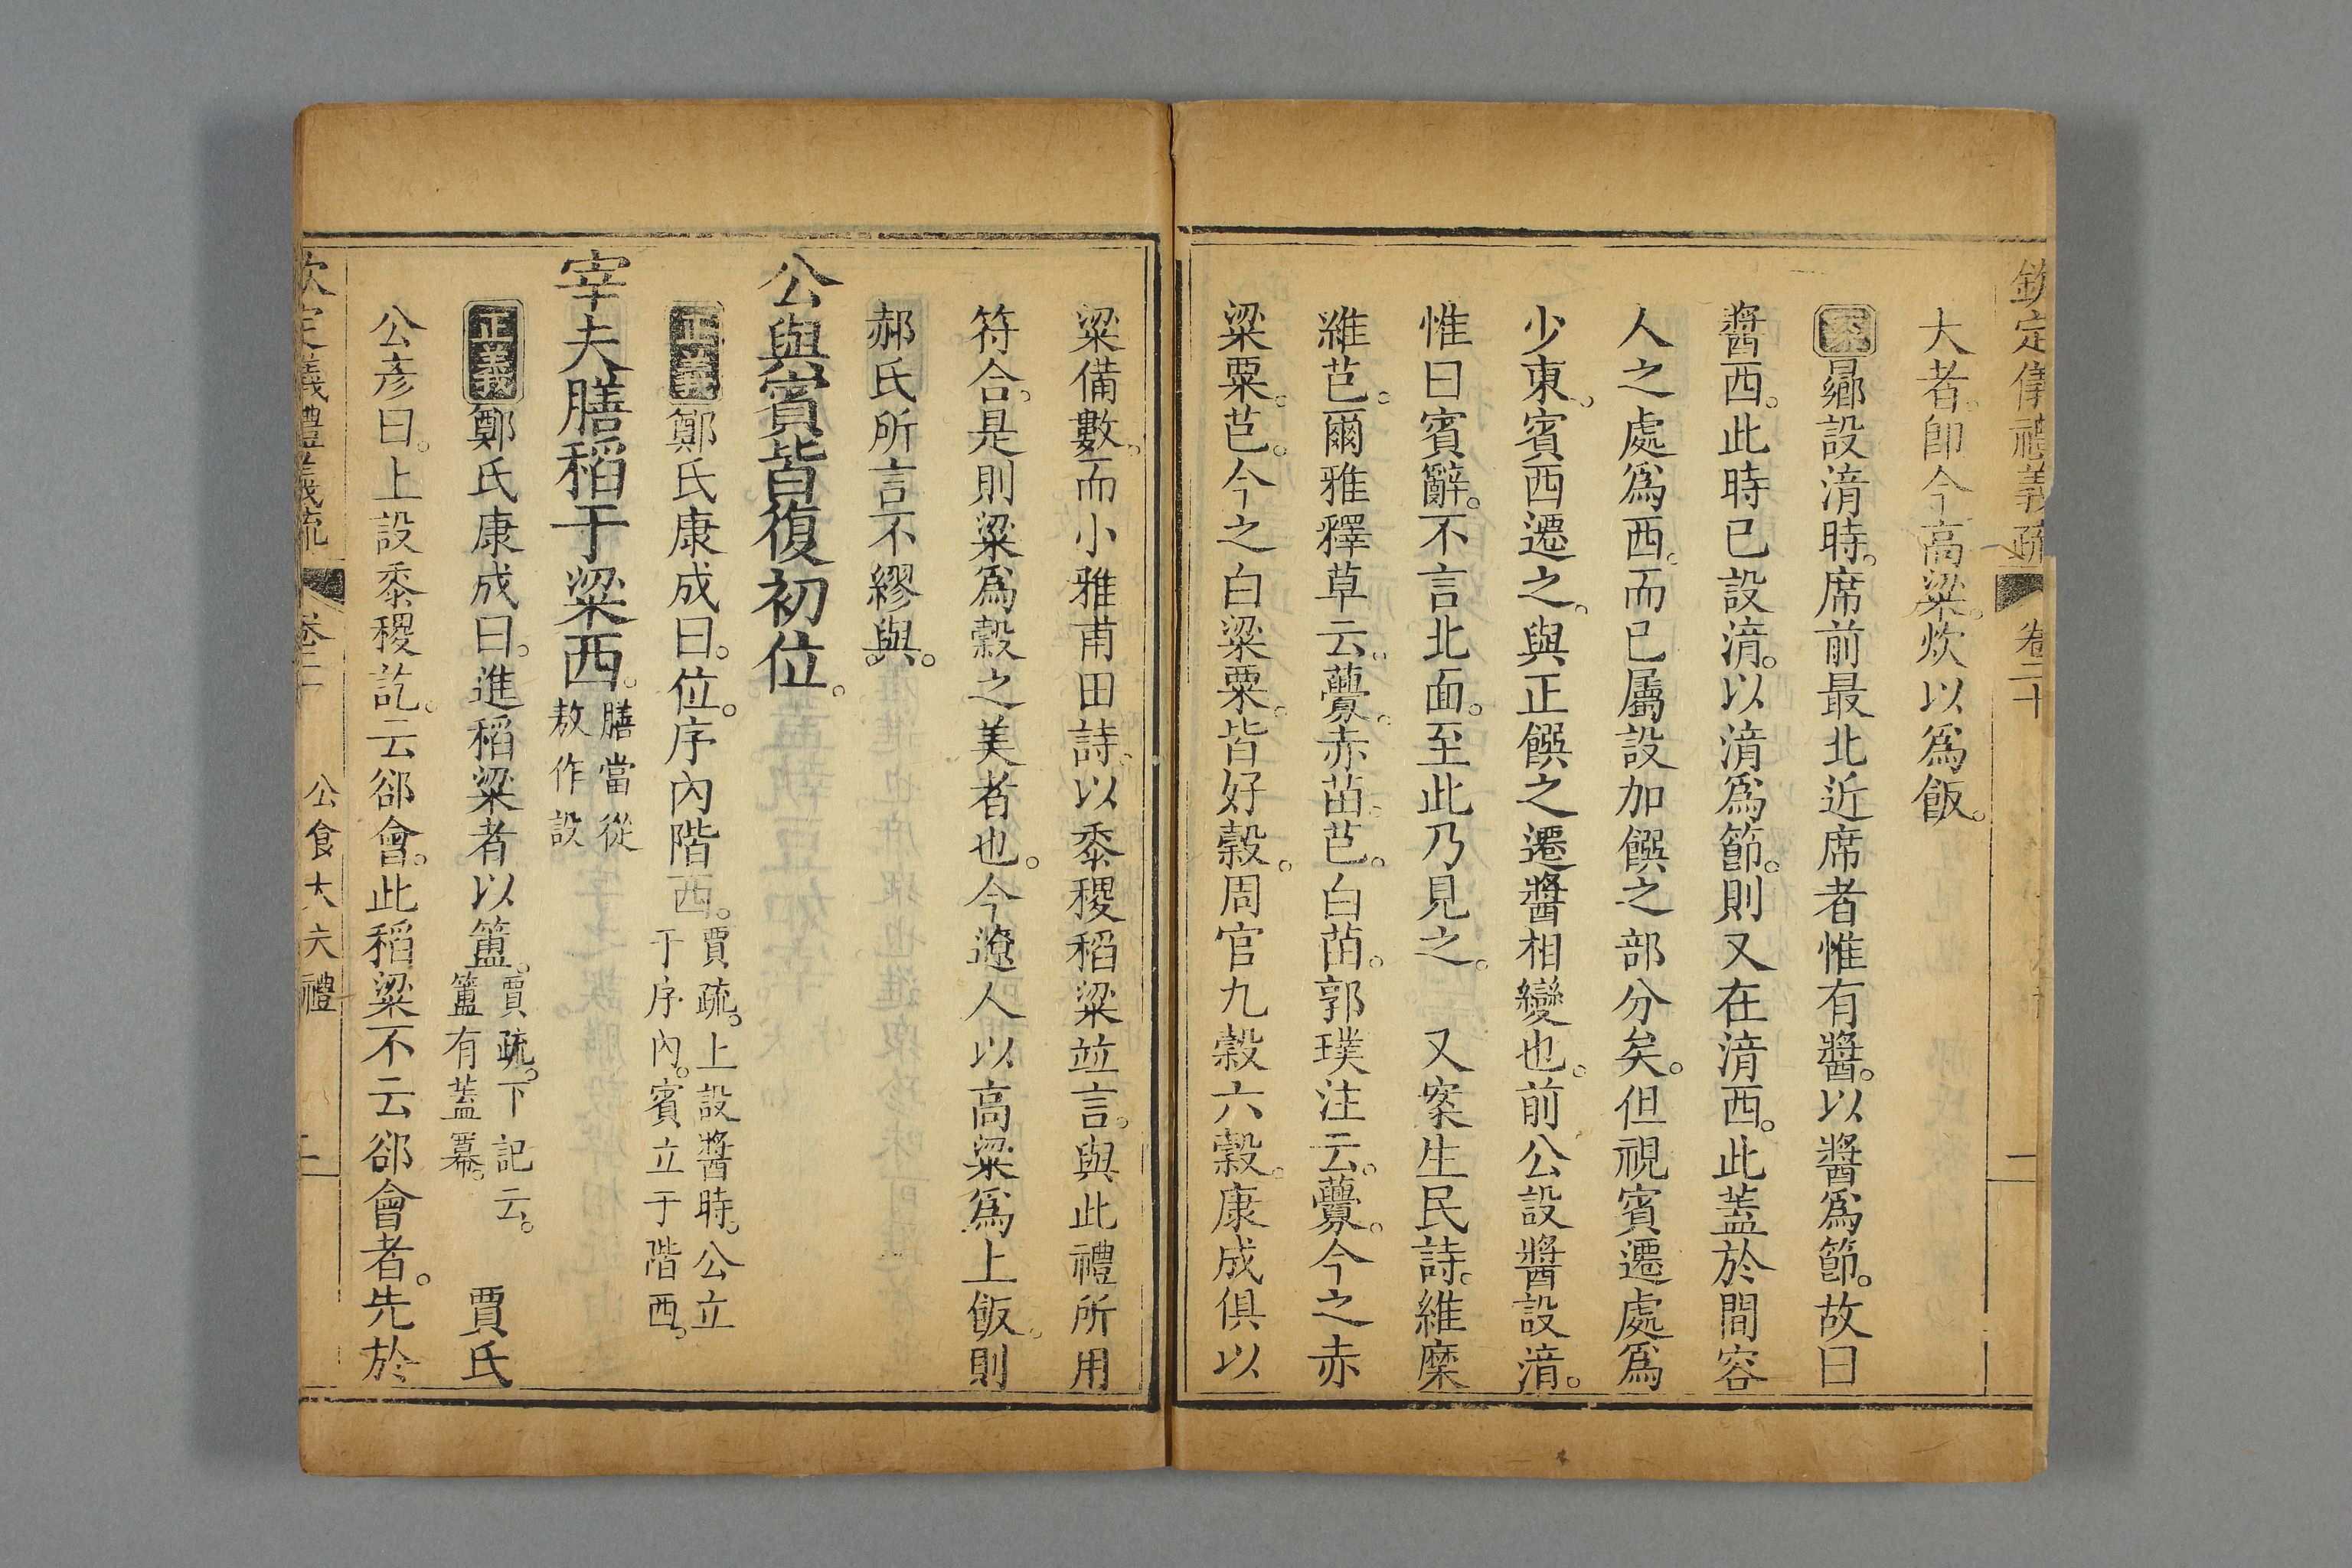 欽定儀禮義疏 卷二十 二
大者。即今高粱。炊以為飯。
案曏設湆時。席前最北近席者惟有醬。以醬為節。故曰
醬西。此時已設湆。以湆為節。則又在湆西。此蓋於間容
人之處為西。而已屬設加饌之部分矣。但視賓遷處為
少東。賓西遷之。與正饌之遷醬相變也。前公設醬設湆。
惟曰賓辭。不言北面。至此乃見之。 又案生民詩。維穈
維芑。爾雅釋草云。虋。赤苗。芑。白苗。郭璞注云。虋。今之赤
粱粟。芑。今之白粱粟。皆好穀。周官九穀六穀。康成俱以
粱備數。而小雅甫田詩。以黍稷稻粱並言。與此禮所用
符合。是則粱為穀之美者也。今遼人以高粱為上飯。則
郝氏所言不繆與。
公與賓皆復初位。
正義鄭氏康成曰。位。序內階西。賈疏。上設醬時。公立于序內。賓立于階西。
宰夫膳稻于粱西。膳當從敖作設
正義鄭氏康成曰。進稻粱者以簠。賈疏。下記云。簠有蓋冪。 賈氏
公彥曰。上設黍稷訖。云郤會。此稻粱不云郤會者。先於
欽定儀禮義疏 卷二十 公食大夫禮